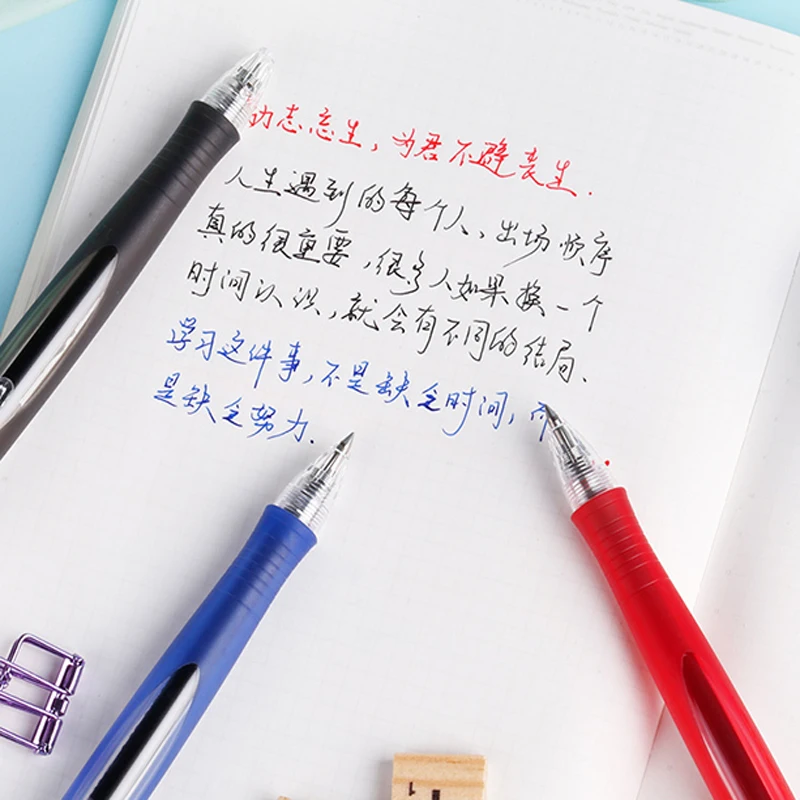 功志忘生，为君不辟丧生.
人生遇到的每个人、出场顺序
真的很重要，很多人如果换一个
时间认识，就会有不同的结局.
学习这件事，不是缺乏时间，而
是缺乏努力.